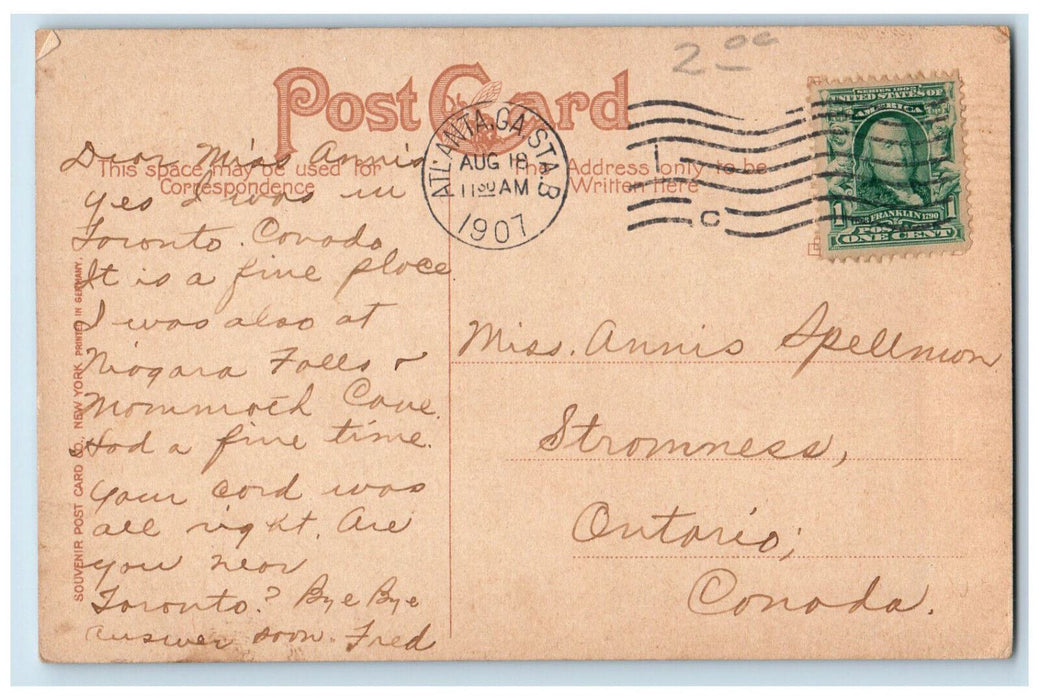 2.00
Post Card
This space may be used for
Correspondence
The Address only to be
Written Here
ATLANTA, GA. STA. B
AUG 18
11 30 AM
1907
1
C
SERIES 1902
UNITED STATES OF
AMERICA
FRANKLIN 1790
1 1
POSTAGE
ONE CENT
SOUVENIR POST CARD CO., NEW YORK PRINTED IN GERMANY.
Dear Miss Annis
yes I was in
Toronto. Canada
It is a fine place.
I was also at
Niagara Falls &
Mammoth Cave.
Had a fine time.
your card was
all right. Are
you near
Toronto? Bye Bye
answer soon. Fred
Miss. Annis Spellman
Stromness,
Ontario,
Canada.